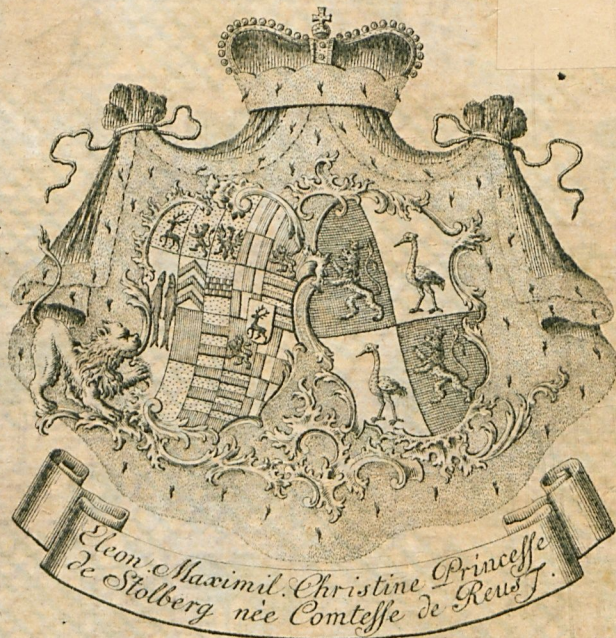 Eleon. Maximil. Christine Princesse
de Stolberg née Comtesse de Reuss.